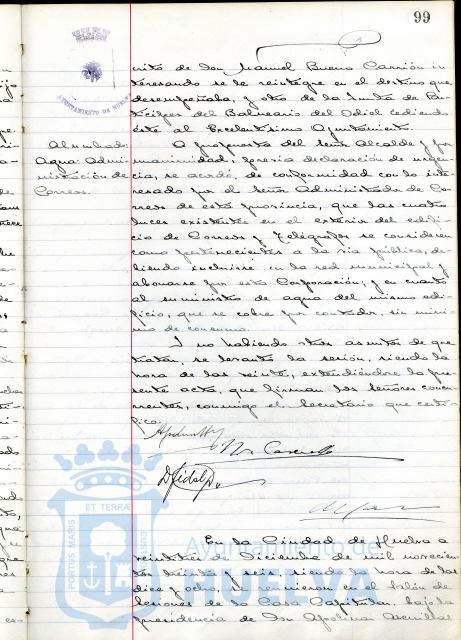 99
crito de Don Manuel Bueno Carrión in-
teresando se le reintegre en el destino que
desempeñaba, y otro de la Junta de Par-
tícipes del Balneario del Odiel cediendo
éste al Excelentísimo Ayuntamiento.
Alumbrado:
Agua: Admi-
nistración de
Correos.
A propuesta del Señor Alcalde y por
unanimidad, previa declaración de urgen-
cia, se acordó, de conformidad con lo inte-
resado por el Señor Administrador de Co-
rreos de esta provincia, que las cuatro
luces existentes en el exterior del edifi-
cio de Correos y Telégrafos se consideren
como pertenecientes a la vía pública, de-
biendo incluirse en la red municipal y
abonarse por esta Corporación; y en cuanto
al suministro de agua del mismo edi-
ficio, que se cobre por contador, sin míni-
mo de consumo.
Y no habiendo otros asuntos de que
tratar, se levantó la sesión, siendo la
hora de las veinte, extendiéndose la pre-
sente acta, que firman los señores concu-
rrentes, conmigo el Secretario que certi-
fico.
D. Fidalgo
En la Ciudad de Huelva a
veintitrés de Diciembre de mil novecien-
tos treinta y seis, siendo la hora de las
diez y ocho, se reunieron en el Salón de
Sesiones de la Casa Capitular, bajo la
presidencia de Don Apolinar Arenillas
AYUNTAMIENTO DE HUELVA
PORTUS MARIS
ET TERRAE
CUSTODIA
Ayuntamiento de
HUELVA